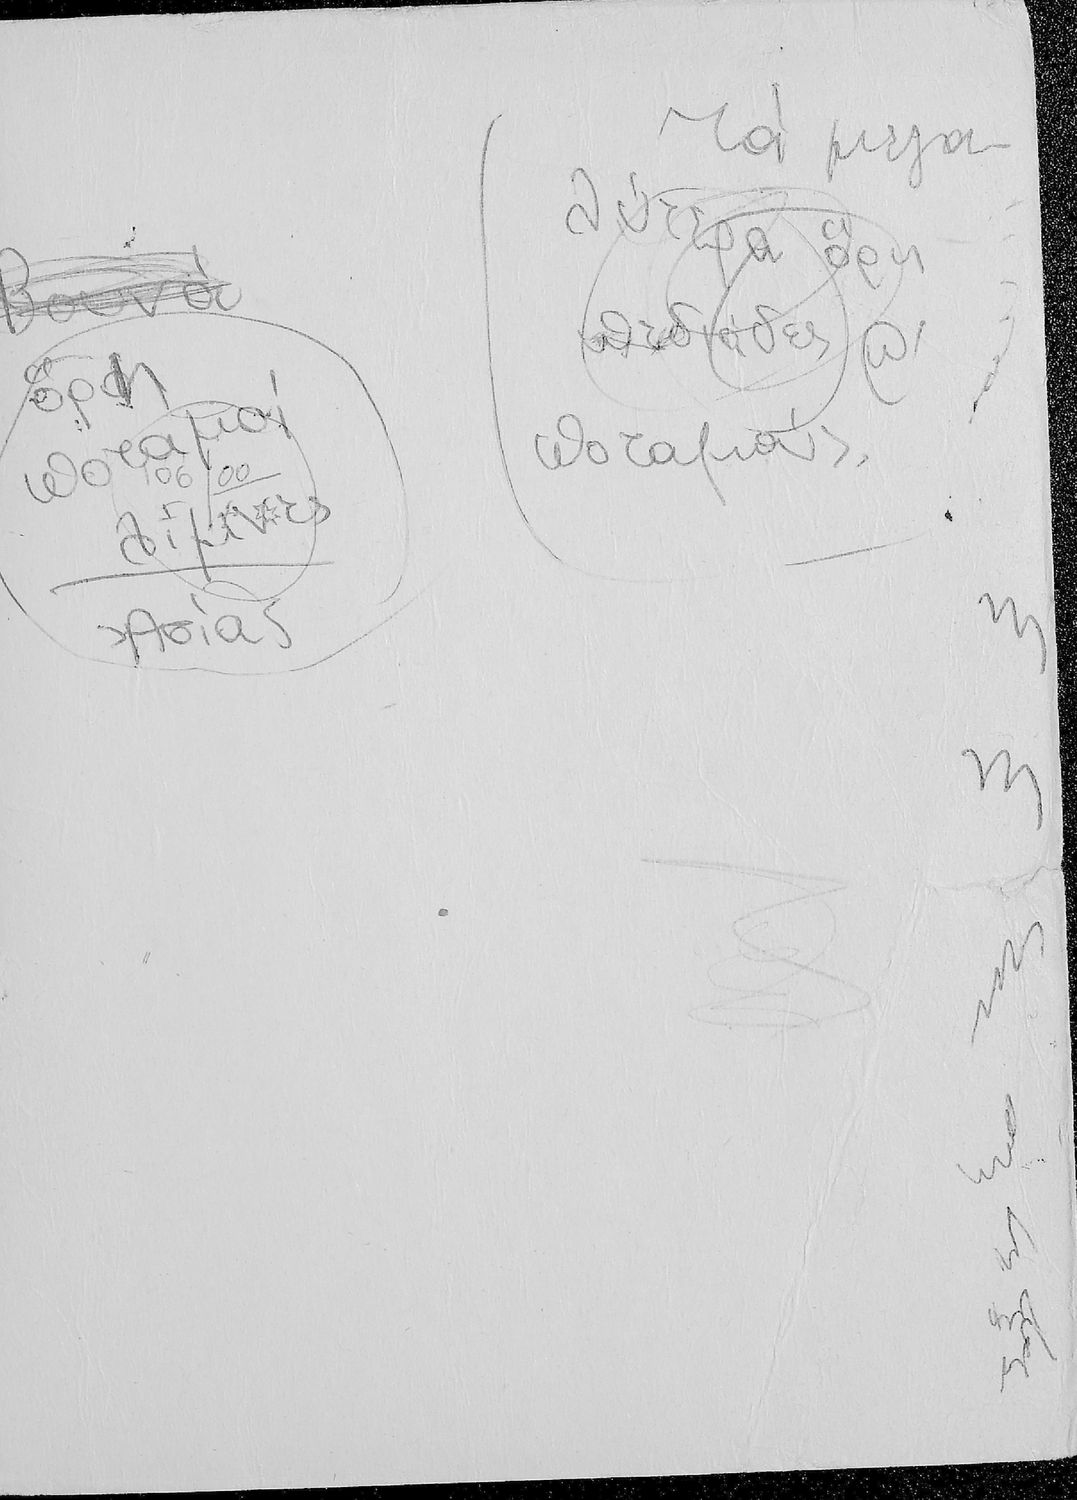 Βουνά
ὄρη
ποταμοί
106 00
λίμνες
Ἀσίας
Τά μεγα-
λύτερα ὄρη
πεδιάδες
ποταμούς.